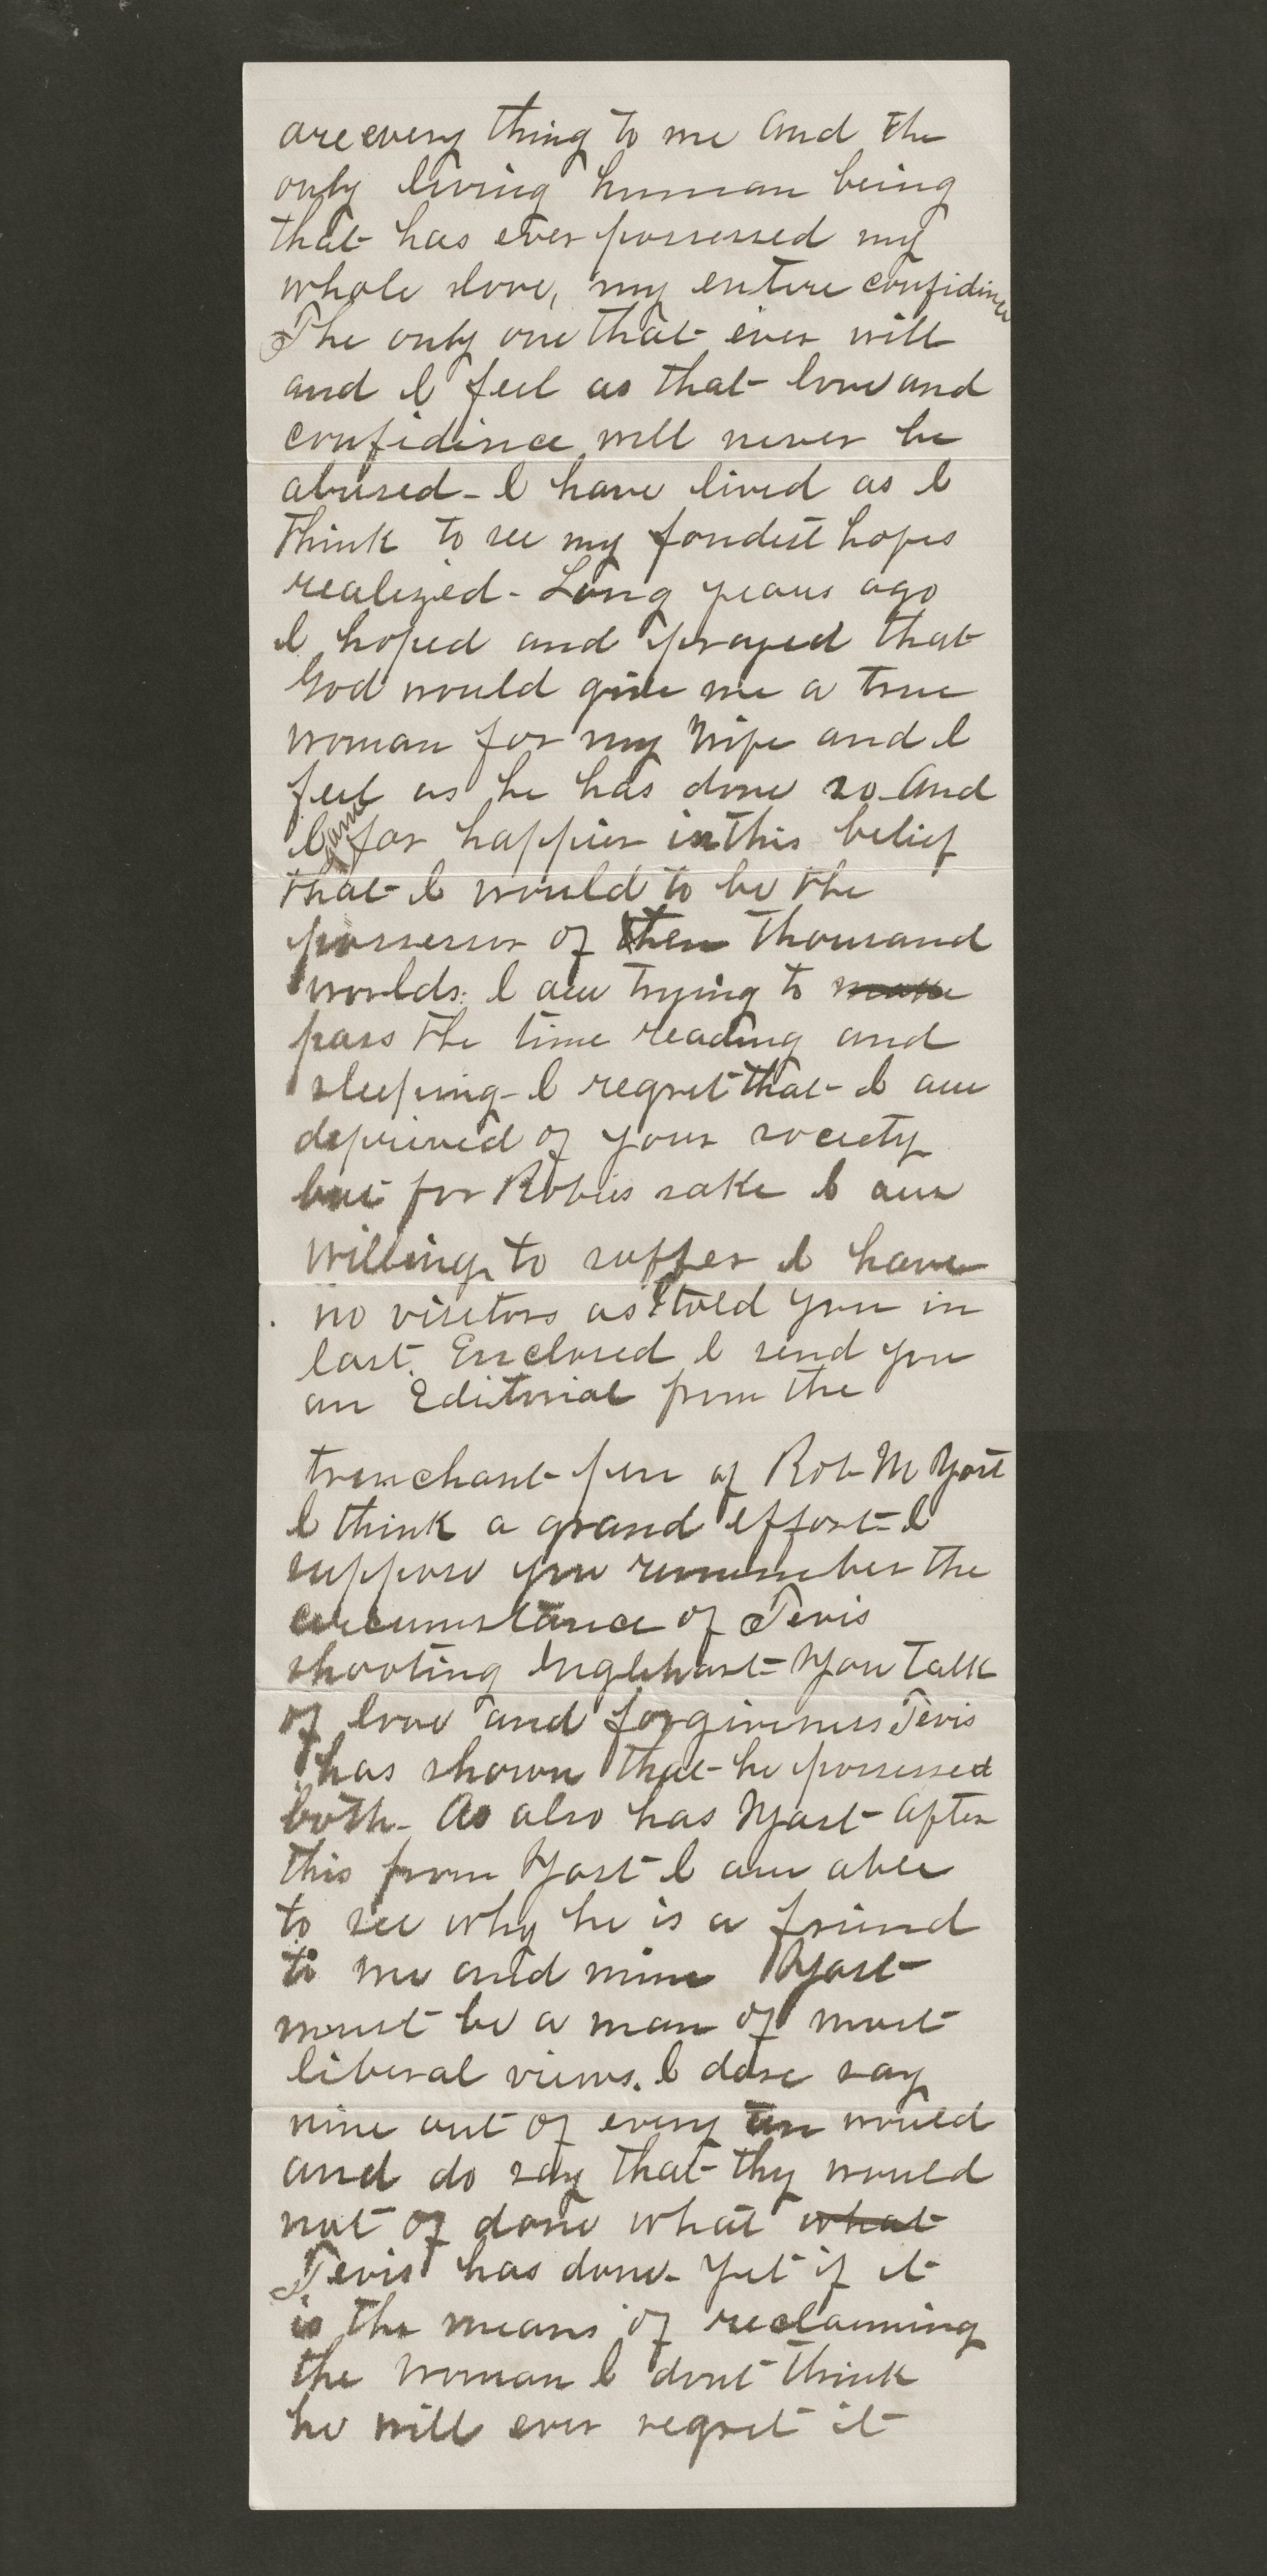 are every thing to me and the
only living human being
that has ever possessed my
whole love, my entire confidince
The only one that ever will
and I feel as that love and
confidince will never be
abused - I have lived as I
think to see my fondest hopes
realized - Long years ago
I hoped and prayed that
God would give me a true
woman for my Wife and I
feel as he has done so - And
I am far happier in this belief
that I would to be the
possessor of then thousand
worlds. I am trying to make
pass the time reading and
sleeping - I regret that I am
deprived of your society
but for Robies sake I am
Willing to suffer I have
no visitors as I told you in
last. Enclosed I send you
an Editorial from the
trenchant pen of Rob M Yost
I think a grand effort - I
suppose you remember the
circumstance of Tevis
shooting Inglehart - You talk
of love and forgiveness Tevis
has shown that he possessed
both - As also has Yost - After
this from Yost I am able
to see why he is a friend
to me and mine Yost
must be a man of most
liberal views. I dare say
nine out of every ten would
and do say that thy would
not of done what what
Tevis has done - Yet if it
is the means of reclaiming
the Woman I dont think
he will ever regret it